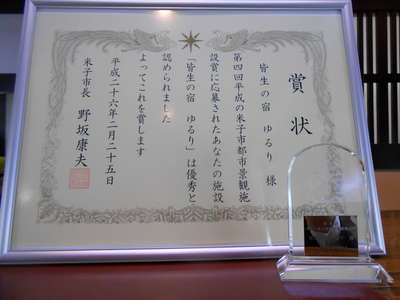 賞状
皆生の宿 ゆるり 様
第四回平成の米子市都市景観施
設賞に応募されたあなたの施設
「皆生の宿 ゆるり」は優秀と
認められました
よってこれを賞します
平成二十六年二月二十五日
米子市長 野坂康夫